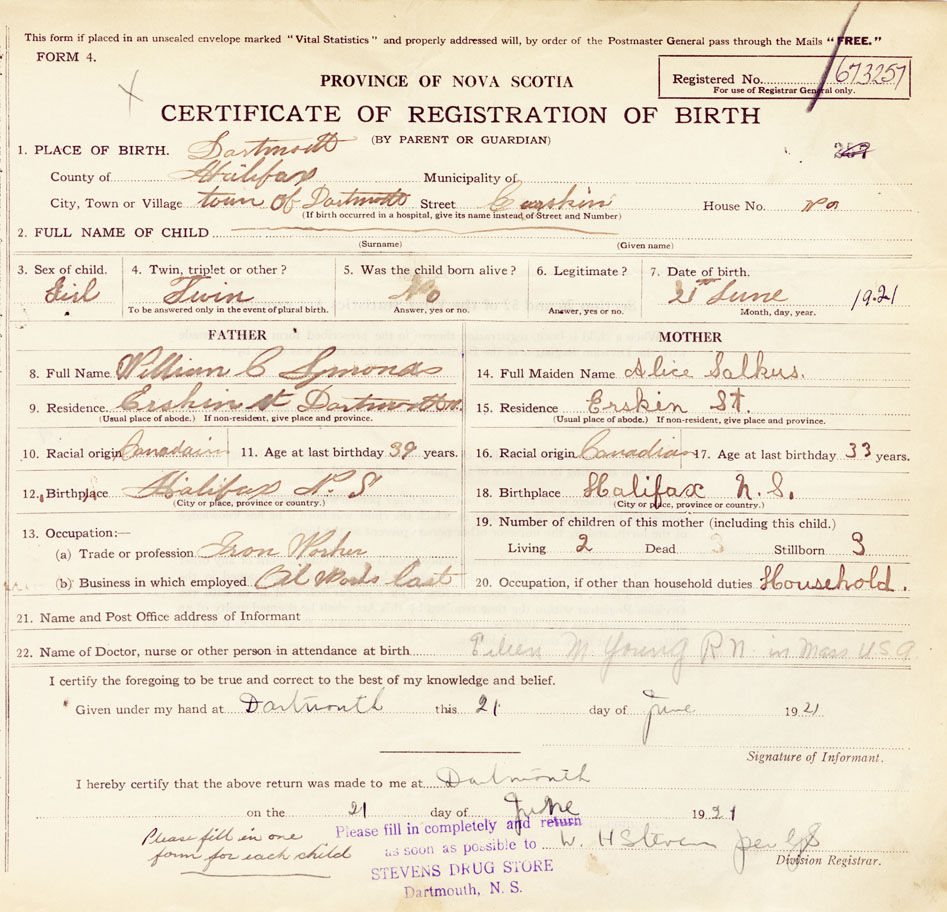 This form if placed in an unsealed envelope marked "Vital Statistics" and properly addressed will, by order of the Postmaster General pass through the Mails "FREE."
FORM 4.
PROVINCE OF NOVA SCOTIA
Registered No. 673257
For use of Registrar General only.
CERTIFICATE OF REGISTRATION OF BIRTH
(BY PARENT OR GUARDIAN)
1. PLACE OF BIRTH. Dartmouth
County of Halifax Municipality of
City, Town or Village town of Dartmouth Street House No. No
(If birth occurred in a hospital, give its name instead of Street and Number)
2. FULL NAME OF CHILD
(Surname) (Given name)
3. Sex of child. 4. Twin, triplet or other? 5. Was the child born alive? 6. Legitimate? 7. Date of birth.
Girl Twin No 21 June 1921
To be answered only in the event of plural birth. Answer, yes or no. Answer, yes or no. Month, day, year.
FATHER MOTHER
8. Full Name William C Symonds 14. Full Maiden Name Alice Salkus.
9. Residence. Erskin St Dartmouth 15. Residence Erskin St.
(Usual place of abode.) If non-resident, give place and province. (Usual place of abode.) If non-resident, give place and province.
10. Racial origin Canadain 11. Age at last birthday 39 years. 16. Racial origin Canadian 17. Age at last birthday 33 years.
12. Birthplace Halifax N. S 18. Birthplace Halifax N. S.
(City or place, province or country.) (City or place, province or country.)
13. Occupation:— 19. Number of children of this mother (including this child.)
(a) Trade or profession Iron Worker Living 2 Dead 3 Stillborn 3
(b) Business in which employed Oil Works last 20. Occupation, if other than household duties. Household.
21. Name and Post Office address of Informant
22. Name of Doctor, nurse or other person in attendance at birth Eileen M. Young R N. in Mass U.S.A.
I certify the foregoing to be true and correct to the best of my knowledge and belief.
Given under my hand at Dartmouth this 21 day of June 1921
Signature of Informant.
I hereby certify that the above return was made to me at Dartmouth
on the 21 day of June 1921
Please fill in completely and return
as soon as possible to W. H Steven per
STEVENS DRUG STORE
Dartmouth, N. S.
Division Registrar.
Please fill in one
form for each child